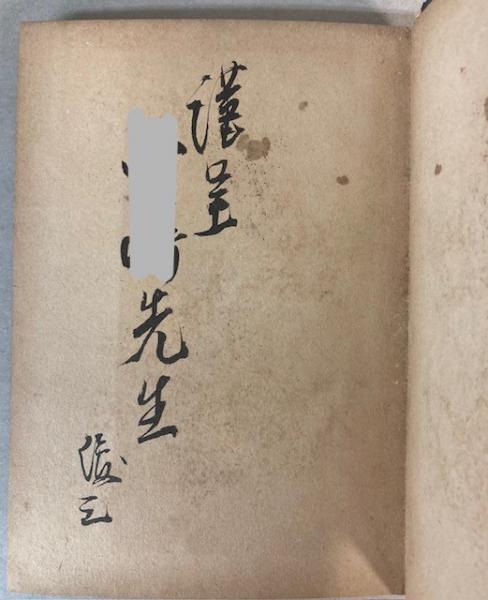 謹呈
先生
俊三